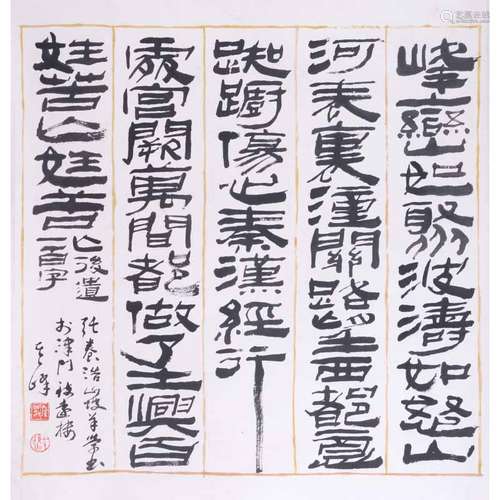 峰巒如聚波濤如怒山
河表裏潼關路望西都意
踟躕傷心秦漢經行
處宮闕萬間都做了土興百
姓苦亡姓苦
亡後遺
一百字
張養浩山坡羊書
於津門樓
其峰